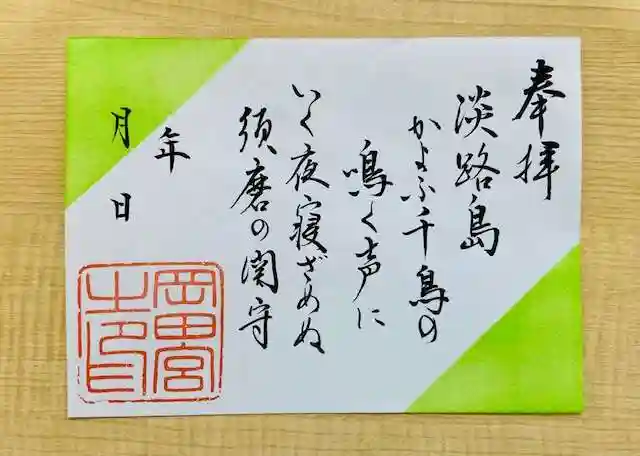 奉拝
淡路島
かよふ千鳥の
鳴く声に
いく夜寝ざめぬ
須磨の関守
年
月　日
岡田宮
之印